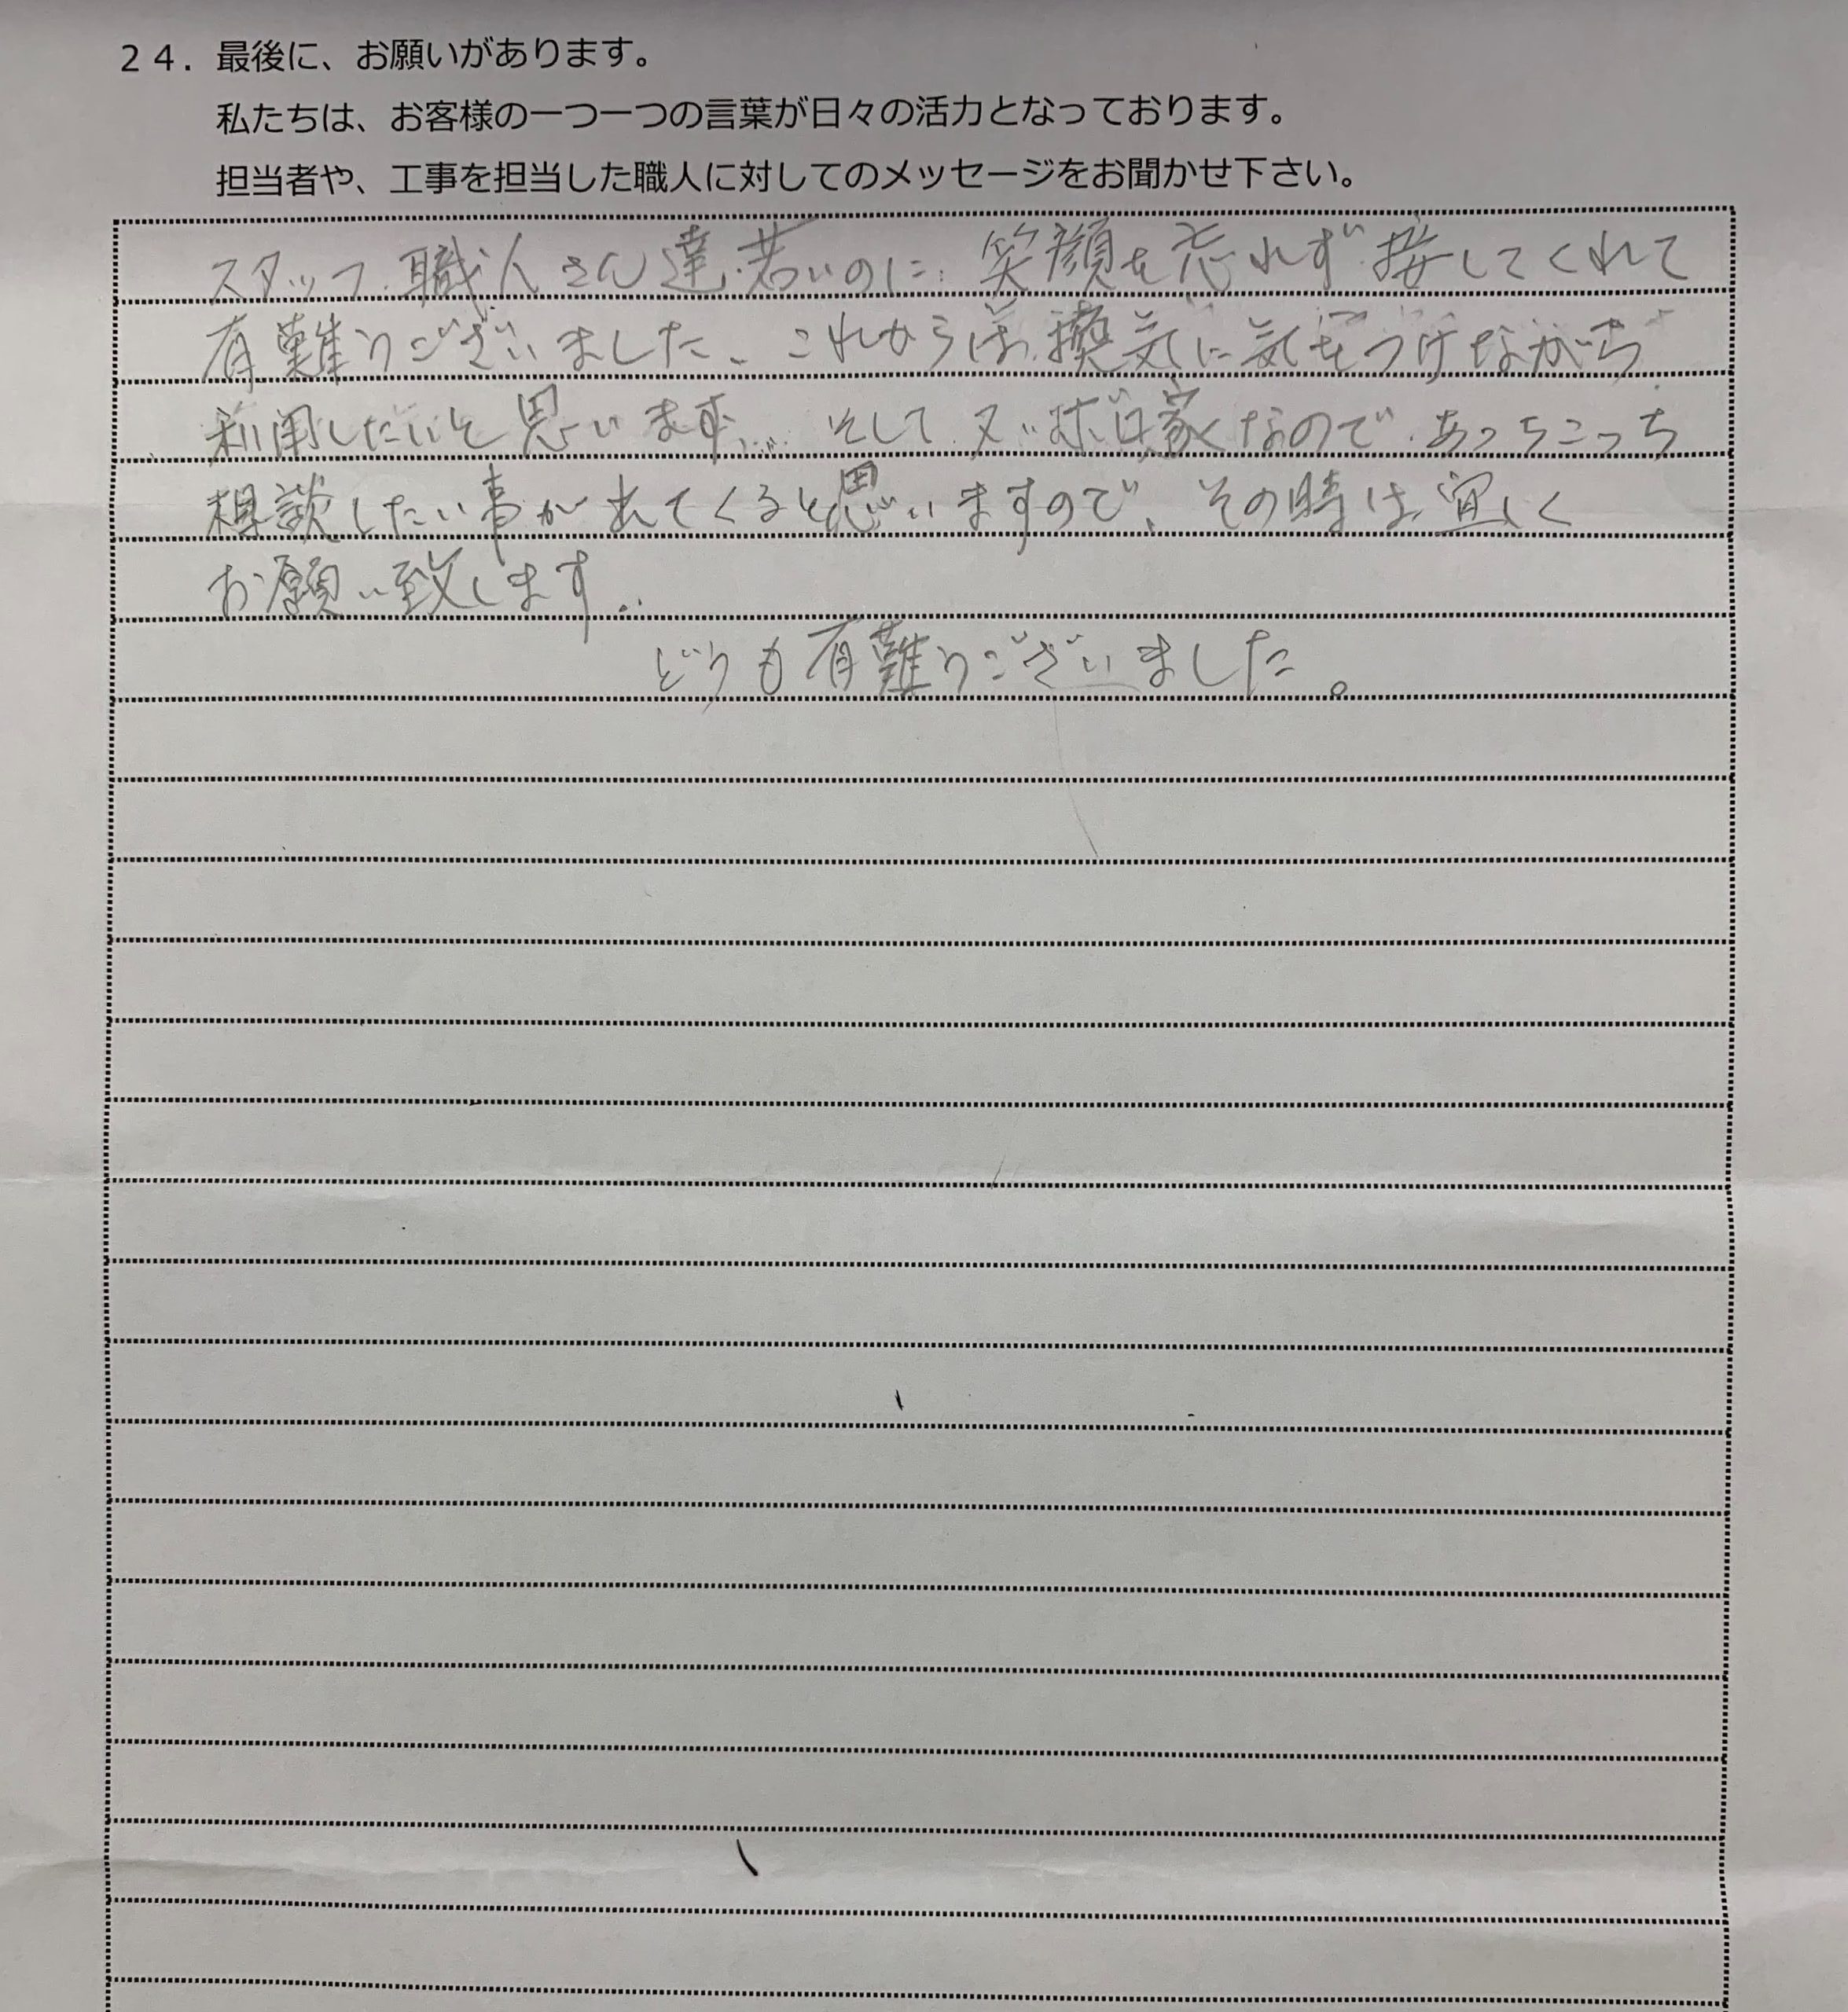 ２４．最後に、お願いがあります。
私たちは、お客様の一つ一つの言葉が日々の活力となっております。
担当者や、工事を担当した職人に対してのメッセージをお聞かせ下さい。
スタッフ、職人さん達、若いのに、笑顔を忘れず接してくれて
有難うございました、これからは、換気に気をつけながら
利用したいと思います。そして又、ボロ家なので、あっちこっち
相談したい事が出てくると思いますので、その時は宜しく
お願い致します。
どうも有難うございました。